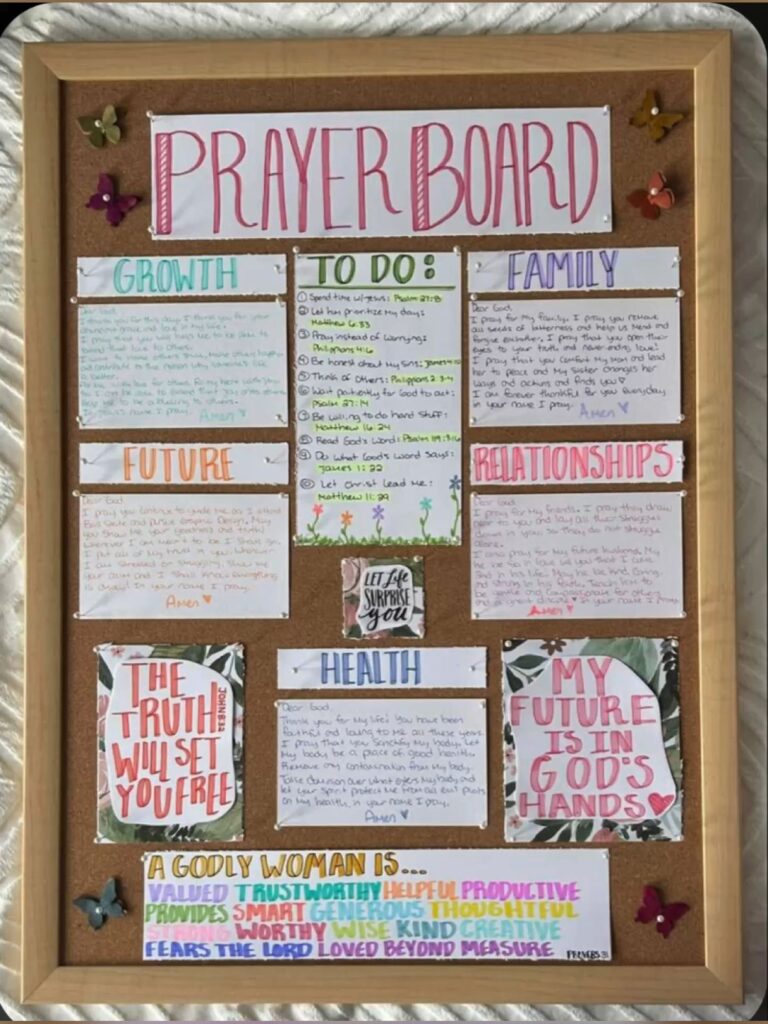 PRAYER BOARD
GROWTH
Dear God,
I thank you for this day. I thank you for your
grace, and love in my life.
I pray that you will help me to be able to
that love to others.
I want to make others
better.
to others.
In Jesus's name I pray. Amen ♡
TO DO:
① Spend time w/ Jesus: Psalm 27:8
② Let him prioritize my day:
Matthew 6:33
③ Pray instead of worrying:
Philippians 4:6
④ Be honest about my sins: James
⑤ Think of others: Philippians 2:3-4
⑥ Wait patiently for God to act:
Psalm 27:14
⑦ Be willing to do hard stuff:
Matthew 16:24
⑧ Read God's word: Psalm 119:
⑨ Do what God's word says:
James 1:22
⑩ Let Christ lead me:
Matthew 11:29
FAMILY
Dear God,
I pray for my family. I pray you remove
all seeds of bitterness and help us mend and
forgive eachother. I pray that you open their
eyes to your truth and never-ending love!
I pray that you comfort my mom and lead
her to peace and my sister changes her
ways and actions and finds you ♡
I am forever thankful for you everyday
in your name I pray. Amen ♡
FUTURE
Dear God,
I pray you continue to guide me as I attend
and pursue Graphic Design. May
you show me your goodness and truth
wherever I am meant to be I shall go.
I put all of my trust in you. Whenever
I am stressed or struggling, show me
your calm and I shall know everything
is okay! In your name I pray.
Amen ♡
RELATIONSHIPS
Dear God,
I pray for my friends. I pray they draw
near to you and lay all their struggles
down in you, so they do not struggle
alone.
I also pray for my future husband. May
he be so in love w/ you that I
find in his life. May he be kind, loving,
and strong in his faith. Teach him to
be gentle and compassionate for others
and a great disciple ♡ In your name I pray.
Amen ♡
LET Life
SURPRISE
you
THE
TRUTH
WILL SET
YOU FREE
JOHN 8:32
HEALTH
Dear God,
Thank you for my life! You have been
faithful and loving to me all these years.
I pray that you sanctify my body. Let
my body be a place of good health.
Remove any contamination from my body.
Take dominion over what enters my body and
let your spirit protect me from all evil plots
on my health, in your name I pray.
Amen ♡
MY
FUTURE
IS IN
GOD'S
HANDS ♥
A GODLY WOMAN IS...
VALUED TRUSTWORTHY HELPFUL PRODUCTIVE
PROVIDES SMART GENEROUS THOUGHTFUL
STRONG WORTHY WISE KIND CREATIVE
FEARS THE LORD LOVED BEYOND MEASURE
PROVERBS 31